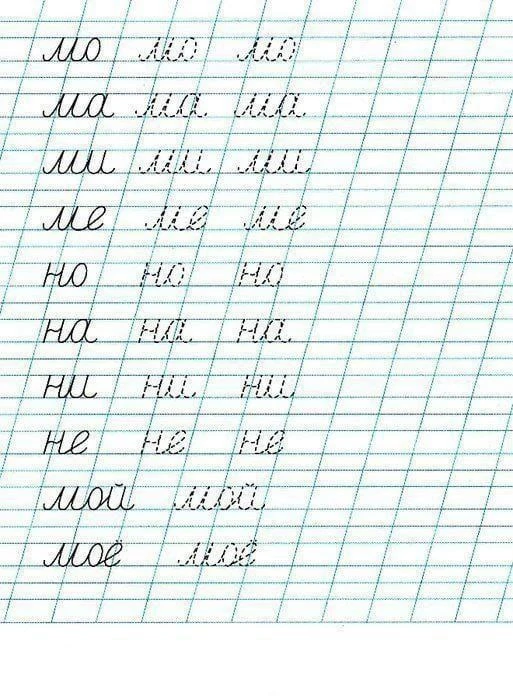 мо мо мо
ма ма ма
ми ми ми
ме ме ме
но но но
на на на
ни ни ни
не не не
мой мой
моё моё